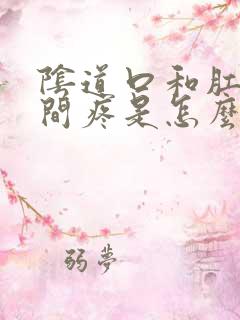 陰道口和肛
間疼是怎麼
弱夢